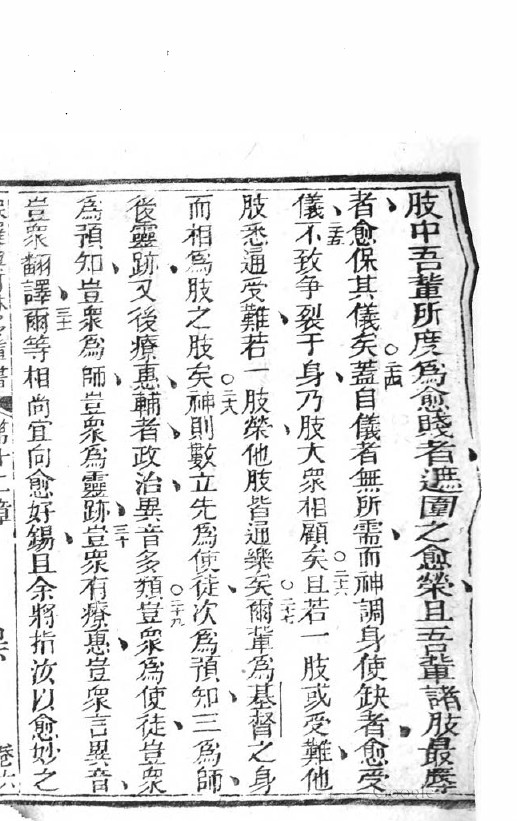 肢中吾輩所度為愈賤者遮圍之愈榮且吾輩諸肢最辱
者愈保其儀矣○二四蓋自儀者無所需而神調身使缺者愈受
儀二五不致争裂于身乃肢大衆相顧矣○二六且若一肢或受難他
肢悉通受難若一肢榮他肢皆通樂矣○二七爾輩為基督之身
而相為肢之肢矣○二八神則數立先為使徒次為預知三為師
後靈跡又後療惠輔者政治異音多類○二九豈衆為使徒豈衆
為預知豈衆為師豈衆為靈跡三十豈衆有療惠豈衆言異音
豈衆翻譯三十一爾等相尚宜向愈好錫且余將指汝以愈妙之
第十二章